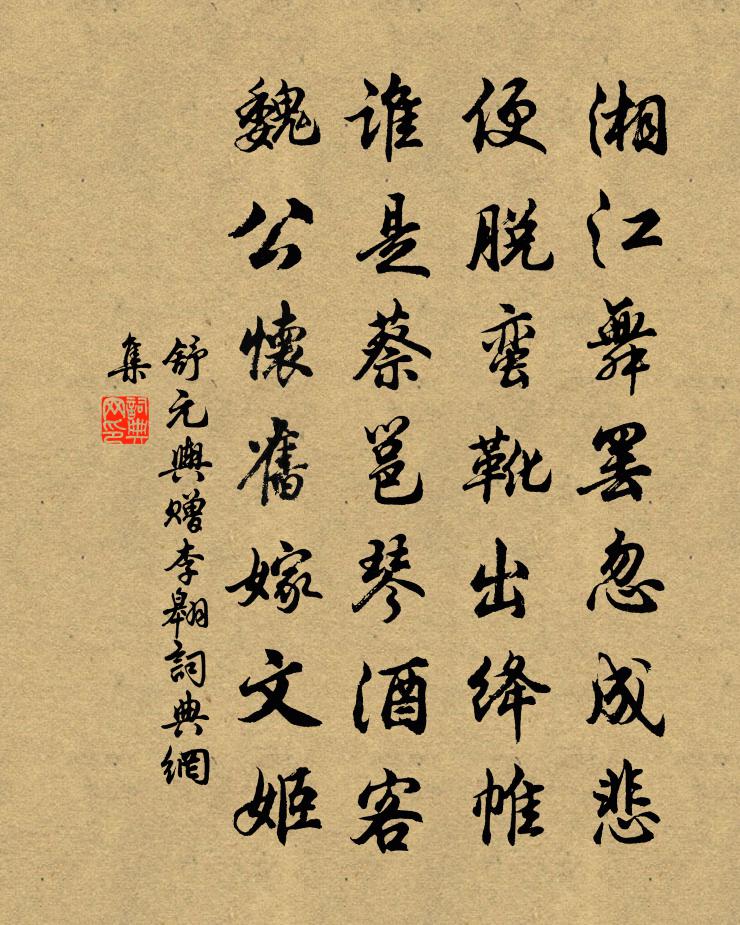 湘江舞罢忽成悲
便脱蛮靴出绛帷
谁是蔡邕琴酒客
魏公懷舊嫁文姬
舒元輿赠李翱詞典網
集
詞典
网印